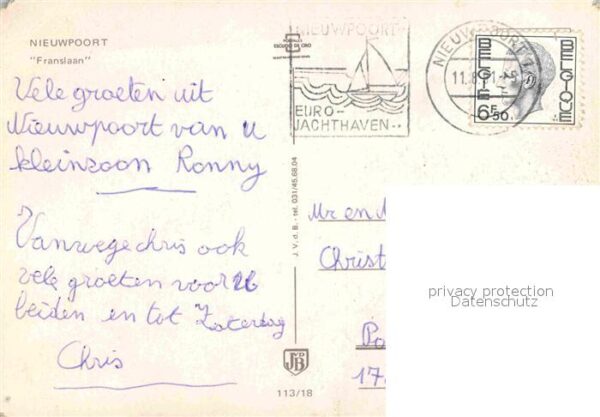 NIEUWPOORT
"Franslaan"
Vele groeten uit
Nieuwpoort van u
kleinzoon Ronny
Vanwege chris ook
vele groeten voor u
beiden en tot Zaterdag
Chris
NIEUWPOORT
EURO-
JACHTHAVEN
NIEUWPOORT 1
BELGIE
BELGIQUE
6F50
J. V. d. B. - tel. 031/45.68.04
Mr en
Christ
Po
17
privacy protection
Datenschutz
JB
113/18